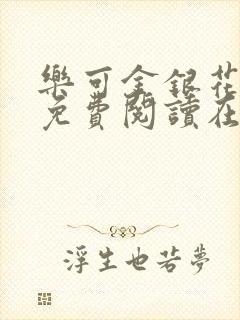 樂可金銀花
免費閱讀在
浮生也若夢